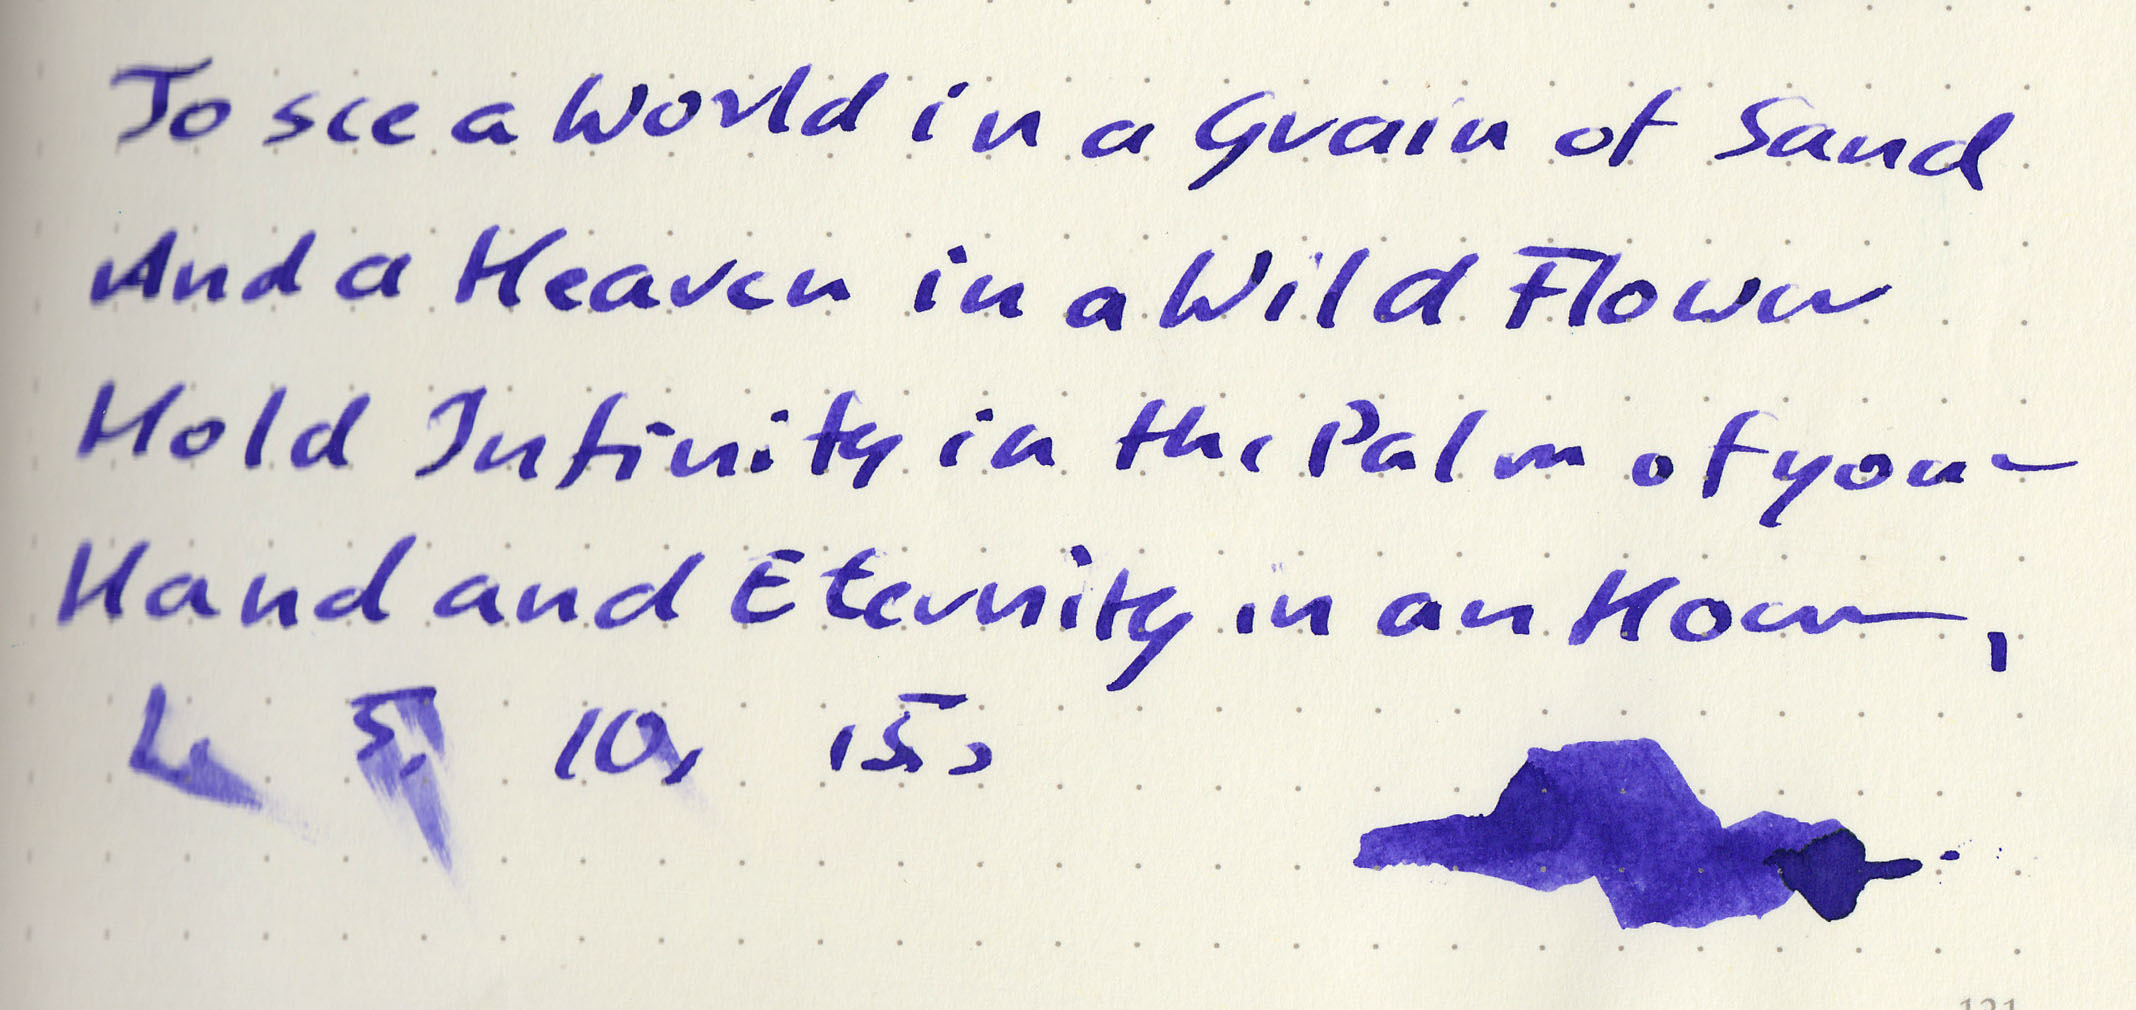 To see a World in a Grain of Sand
And a Heaven in a Wild Flower
Hold Infinity in the Palm of your
Hand and Eternity in an Hour,
1, 5, 10, 15,